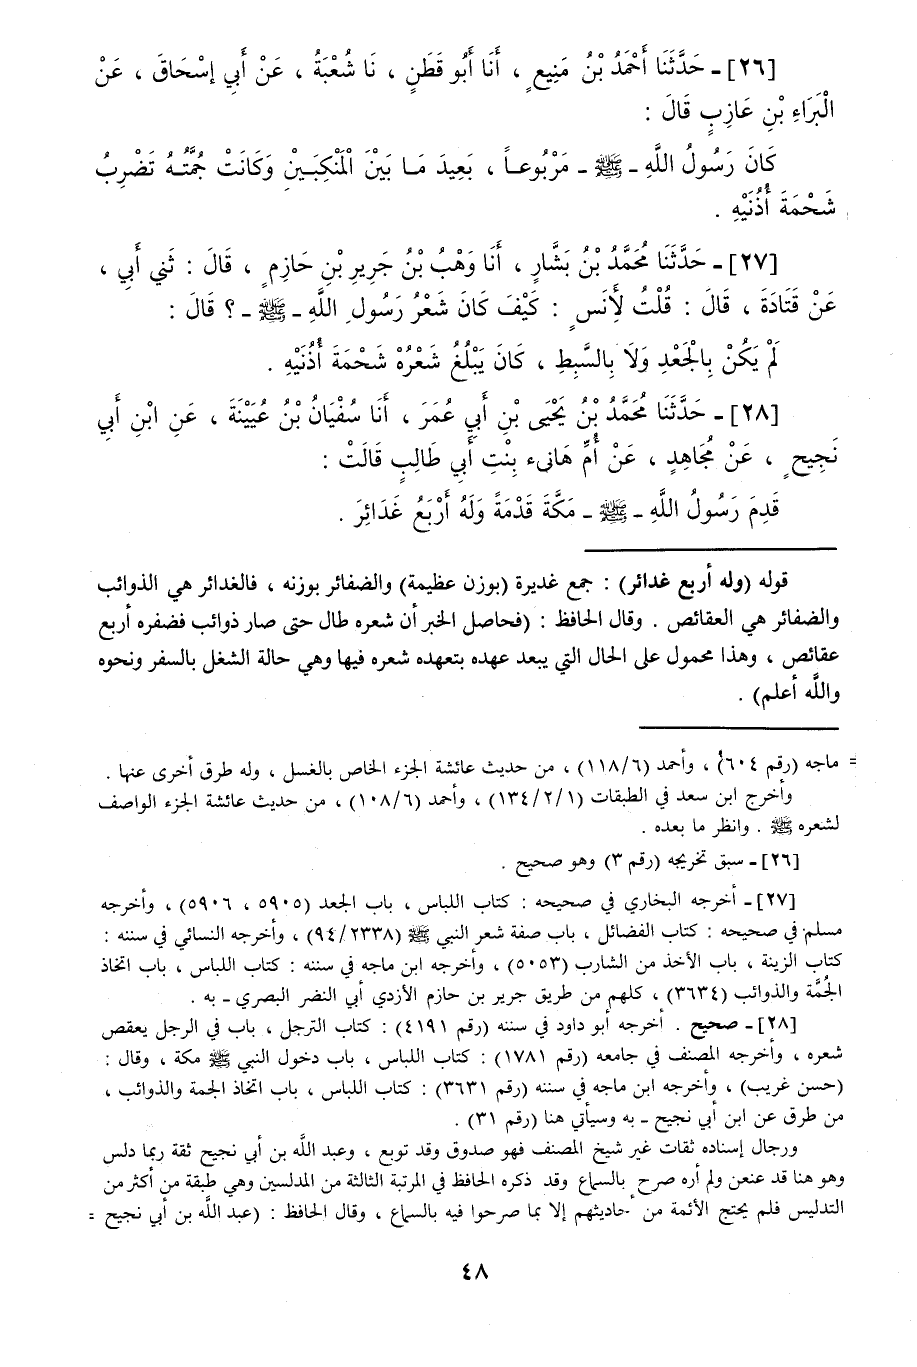 [٢٦] ـ حَدَّثَنَا أَحْمَدُ بْنُ مَنِيعٍ ، أَنَا أَبُو قَطَنٍ ، نَا شُعْبَةُ ، عَنْ أَبِي إِسْحَاقَ ، عَنْ
الْبَرَاءِ بْنِ عَازِبٍ قَالَ :
كَانَ رَسُولُ اللَّهِ ـ ﷺ ـ مَرْبُوعاً ، بَعِيدَ مَا بَيْنَ الْمَنْكِبَيْنِ وَكَانَتْ جُمَّتُهُ تَضْرِبُ
شَحْمَةَ أُذُنَيْهِ .
[٢٧] ـ حَدَّثَنَا مُحَمَّدُ بْنُ بَشَّارٍ ، أَنَا وَهْبُ بْنُ جَرِيرِ بْنِ حَازِمٍ ، قَالَ : ثَنِي أَبِي ،
عَنْ قَتَادَةَ ، قَالَ : قُلْتُ لِأَنَسٍ : كَيْفَ كَانَ شَعْرُ رَسُولِ اللَّهِ ـ ﷺ ـ ؟ قَالَ :
لَمْ يَكُنْ بِالْجَعْدِ وَلَا بِالسَّبِطِ ، كَانَ يَبْلُغُ شَعْرُهُ شَحْمَةَ أُذُنَيْهِ .
[٢٨] ـ حَدَّثَنَا مُحَمَّدُ بْنُ يَحْيَى بْنِ أَبِي عُمَرَ ، أَنَا سُفْيَانُ بْنُ عُيَيْنَةَ ، عَنِ ابْنِ أَبِي
نَجِيحٍ ، عَنْ مُجَاهِدٍ ، عَنْ أُمِّ هَانِیء بِنْتِ أَبِي طَالِبٍ قَالَتْ :
قَدِمَ رَسُولُ اللَّهِ ـ ﷺ ـ مَكَّةَ قَدْمَةً وَلَهُ أَرْبَعُ غَدَائِرَ .
قوله (وله أربع غدائر) : جمع غديرة (بوزن عظيمة) والضفائر بوزنه ، فالغدائر هي الذوائب
والضفائر هي العقائص . وقال الحافظ : (فحاصل الخبر أن شعره طال حتى صار ذوائب فضفره أربع
عقائص ، وهذا محمول على الحال التي يبعد عهده بتعهده شعره فيها وهي حالة الشغل بالسفر ونحوه
واللَّه أعلم) .
= ماجه (رقم ٦٠٤) ، وأحمد (١١٨/٦) ، من حديث عائشة الجزء الخاص بالغسل ، وله طرق أخرى عنها .
وأخرج ابن سعد في الطبقات (١٣٤/٢/١) ، وأحمد (١٠٨/٦) ، من حديث عائشة الجزء الواصف
لشعره ﷺ . وانظر ما بعده .
[٢٦] ـ سبق تخريجه (رقم ٣) وهو صحيح .
[٢٧] ـ أخرجه البخاري في صحيحه : كتاب اللباس ، باب الجعد (٥٩٠٥ ، ٥٩٠٦) ، وأخرجه
مسلم في صحيحه : كتاب الفضائل ، باب صفة شعر النبي ﷺ (٩٤/٢٣٣٨) ، وأخرجه النسائي في سننه :
كتاب الزينة ، باب الأخذ من الشارب (٥٠٥٣) ، وأخرجه ابن ماجه في سننه : كتاب اللباس ، باب اتخاذ
الجُمَّة والذوائب (٣٦٣٤) ، كلهم من طريق جرير بن حازم الأزدي أبي النضر البصري ـ به .
[٢٨] ـ صحيح . أخرجه أبو داود في سننه (رقم ٤١٩١) : كتاب الترجل ، باب في الرجل يعقص
شعره ، وأخرجه المصنف في جامعه (رقم ١٧٨١) : كتاب اللباس ، باب دخول النبي ﷺ مكة ، وقال :
(حسن غريب) ، وأخرجه ابن ماجه في سننه (رقم ٣٦٣١) : كتاب اللباس ، باب اتخاذ الجمة والذوائب ،
من طرق عن ابن أبي نجيح ـ به وسيأتي هنا (رقم ٣١) .
ورجال إسناده ثقات غير شيخ المصنف فهو صدوق وقد توبع ، وعبد اللَّه بن أبي نجيح ثقة ربما دلس
وهو هنا قد عنعن ولم أره صرح بالسماع وقد ذكره الحافظ في المرتبة الثالثة من المدلسين وهي طبقة من أكثر من
التدليس فلم يحتج الأئمة من أحاديثهم إلا بما صرحوا فيه بالسماع ، وقال الحافظ : (عبد اللَّه بن أبي نجيح =
٤٨